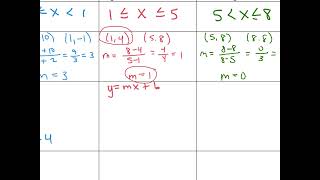 ≤ x < 1 1 ≤ x ≤ 5 5 < x ≤ 8
10) (1,-1) (1,4) (5,8) (5,8) (8,8)
+10 / +2 = 9/3 = 3 m = 8-4 / 5-1 = 4/4 = 1 m = 8-8 / 8-5 = 0/3 =
m = 3 m = 1 m = 0
y = mx + b
4